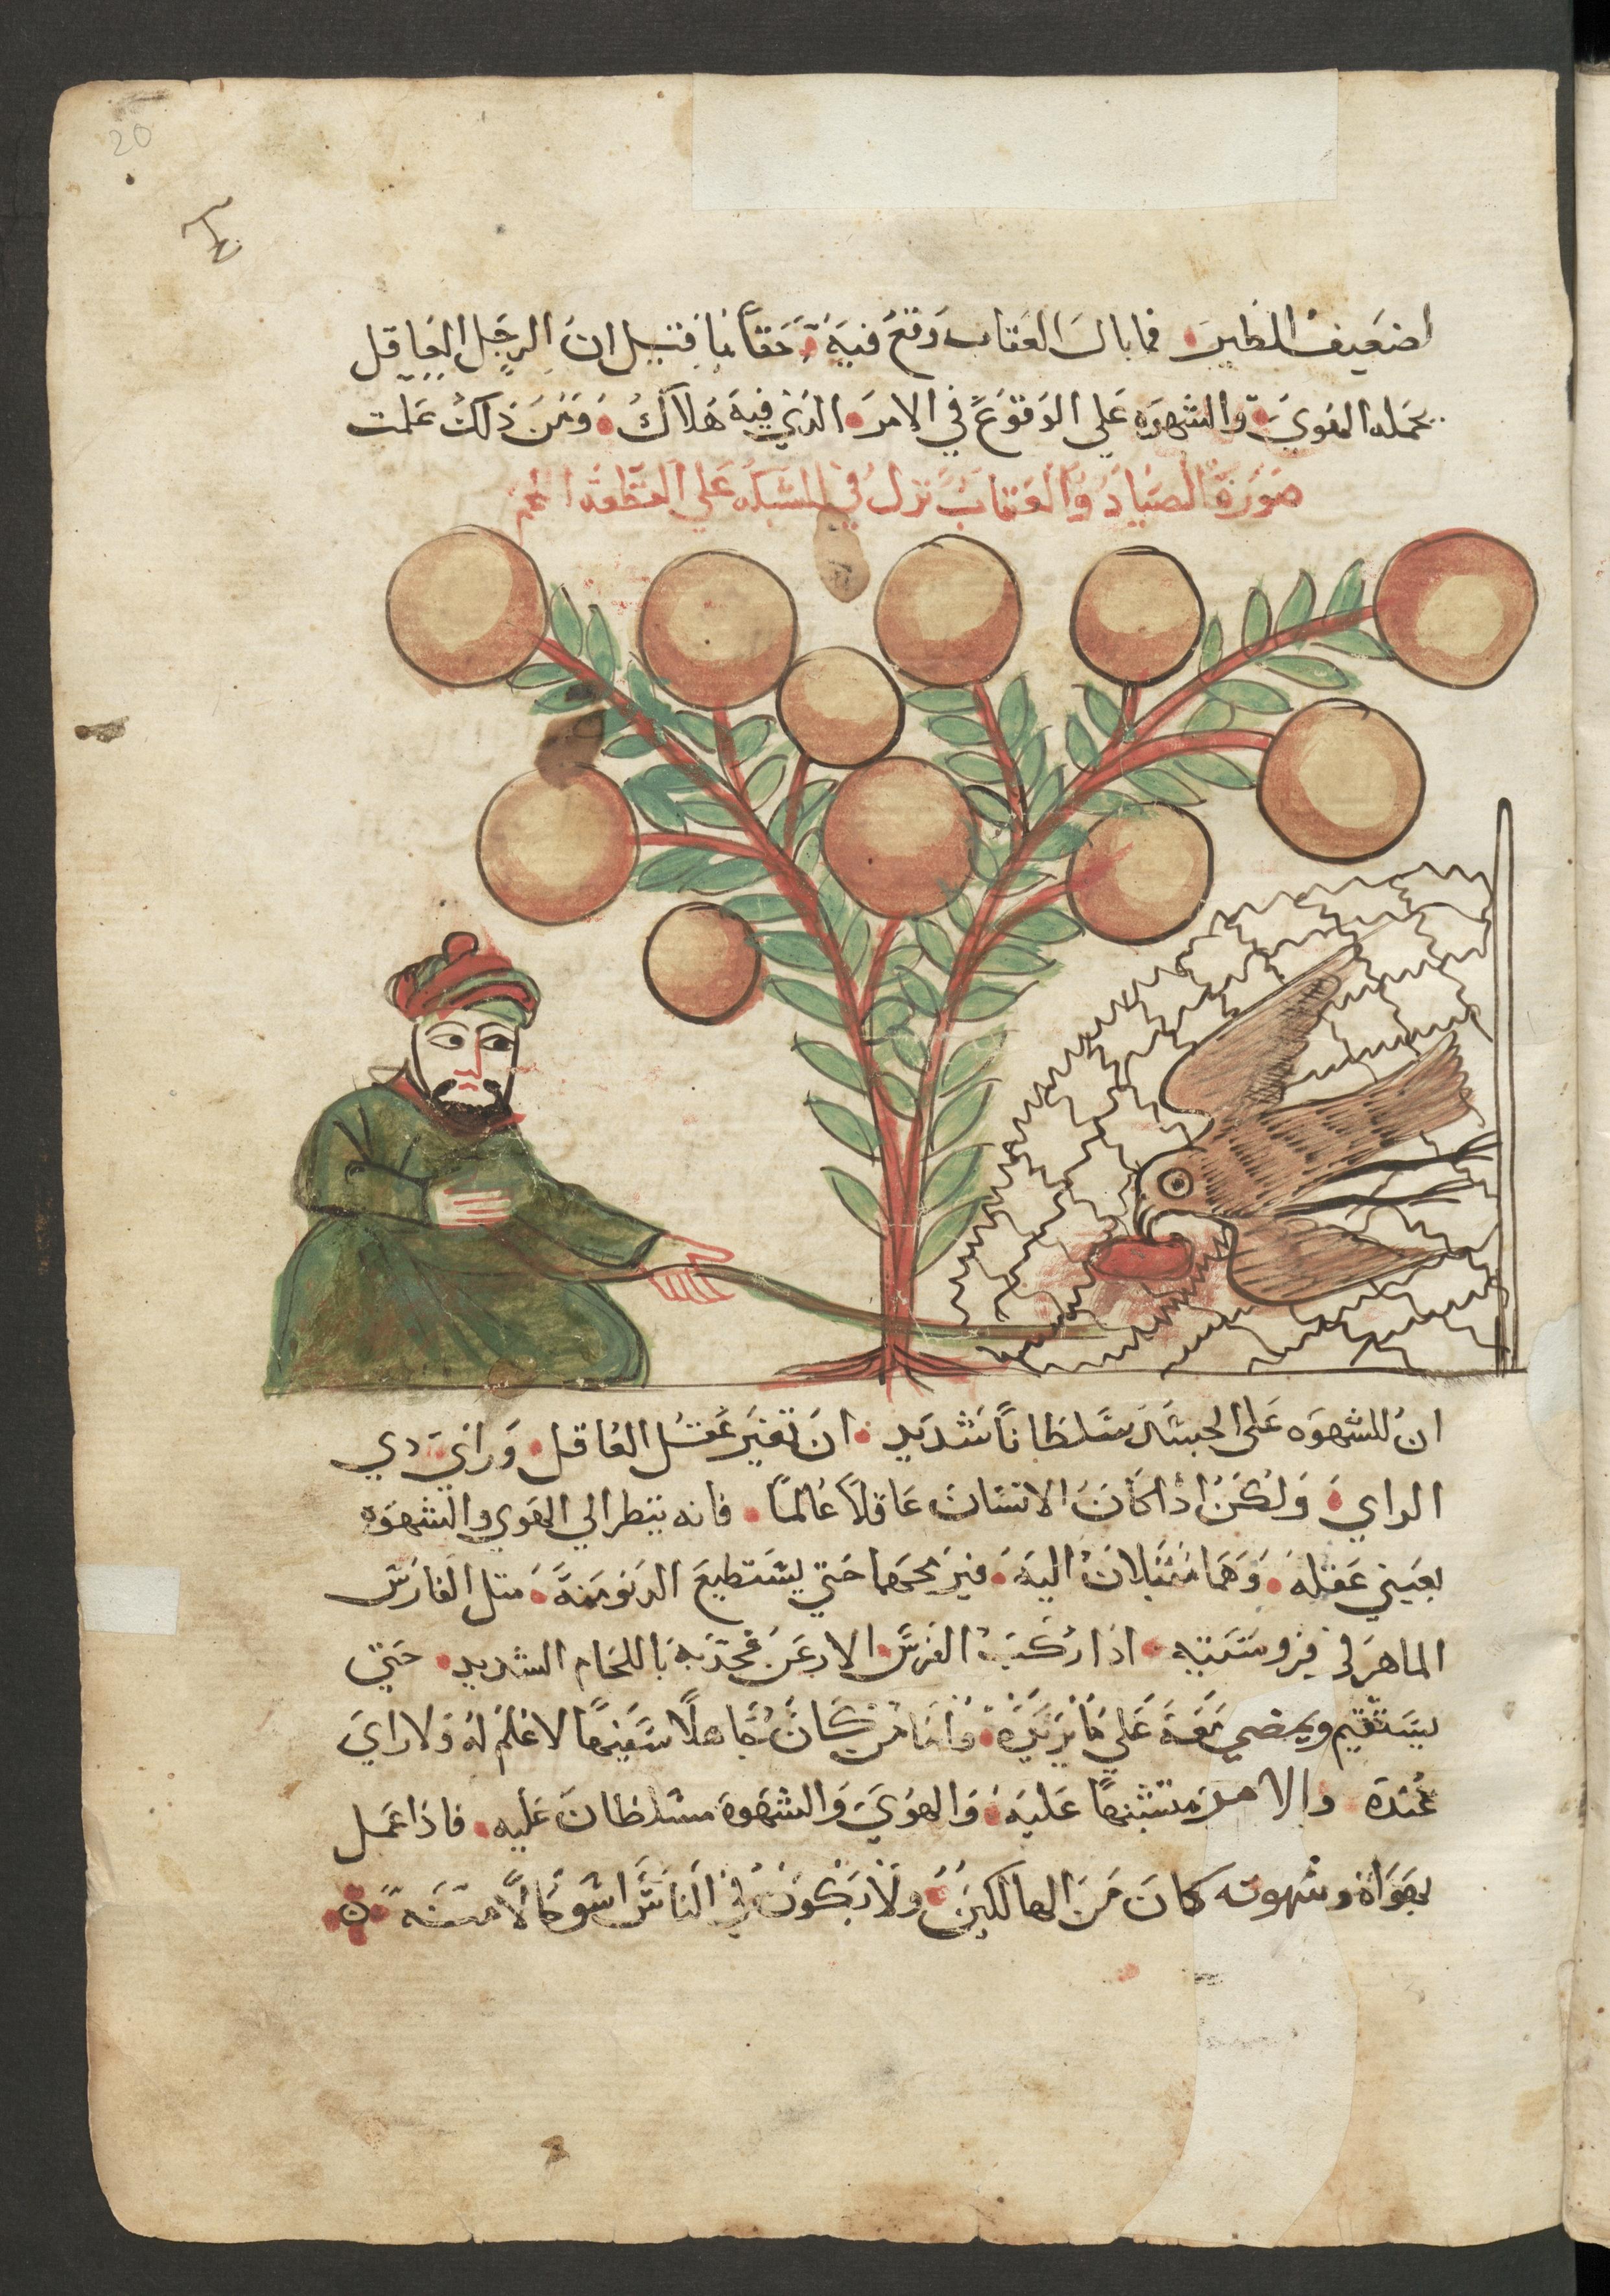 20
اضعيف الطير فما بال العقاب وقع فيه حقاً ما قيل ان الرجل العاقل
يحمله الهوي والشهوه علي الوقوع في الامر الذي فيه هلاك ومن ذلك علمت
صورة الصياد والعقاب نزل في الشبكه علي القطعه الحم
ان للشهوه على الجسد سلطاناً شديد ان تغير عقل العاقل وراي دي
الراي ولكن ادا كان الانسان عاقلاً عالماً فانه ينظر الي الهوي والشهوه
بعيني عقله وهما مقبلان اليه فيزجمهما حتي يستطيع الدنو منه متل الفارس
الماهر في فروسيته اذا ركب الفرس الارعن فجذبه باللحام الشديد حتي
يستقيم ويمضي معه علي ما يريده واما من كان جاهلاً سفيهاً لا علم له ولا راي
عنده والامر متشبهاً عليه والهوي والشهوة مسلطان عليه فاذا عمل
بهواه وشهوته كان من الهالكين ولا يكون في الناس اسو حالاً منه